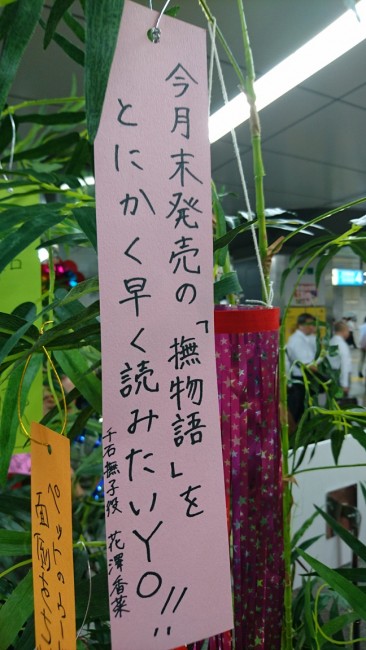 今月末発売の「撫物語」を
とにかく早く読みたいYO!!
千石撫子役 花澤香菜
ペットの